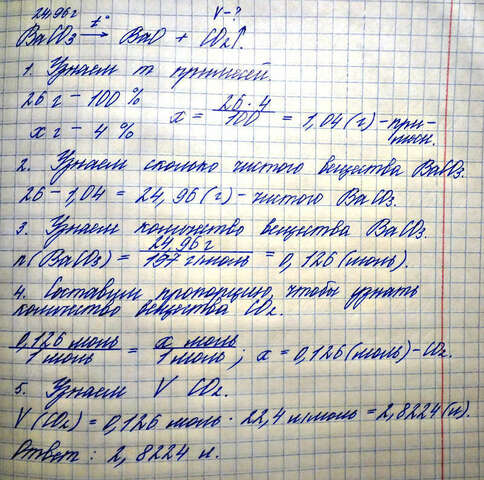 24,96 г V-?
BaCO₃ →t° BaO + CO₂↑.
1. Узнаем m примесей.
26 г – 100 %
x г – 4 %
x = 26 · 4 / 100 = 1,04 (г) – при-
месн.
2. Узнаем сколько чистого вещества BaCO₃.
26 – 1,04 = 24,96 (г) – чистого BaCO₃.
3. Узнаем количество вещества BaCO₃.
n(BaCO₃) = 24,96 г / 197 г/моль = 0,126 (моль).
4. Составим пропорцию, чтобы узнать
количество вещества CO₂.
0,126 моль / 1 моль = x моль / 1 моль; x = 0,126 (моль) – CO₂.
5. Узнаем V CO₂.
V (CO₂) = 0,126 моль · 22,4 л/моль = 2,8224 (л).
Ответ: 2,8224 л.